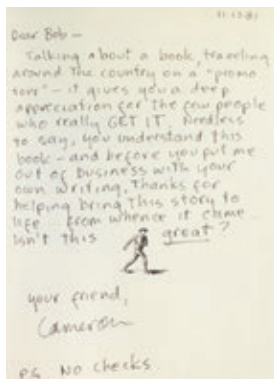 11-13-81
Dear Bob —
Talking about a book, traveling
around the country on a "promo
tour" — it gives you a deep
appreciation for the few people
who really GET IT. Needless
to say, you understand this
book — and before you put me
out of business with your
own writing, Thanks for
helping bring this story to
life from whence it came.
Isn't this great?
your friend,
Cameron
PS. No checks